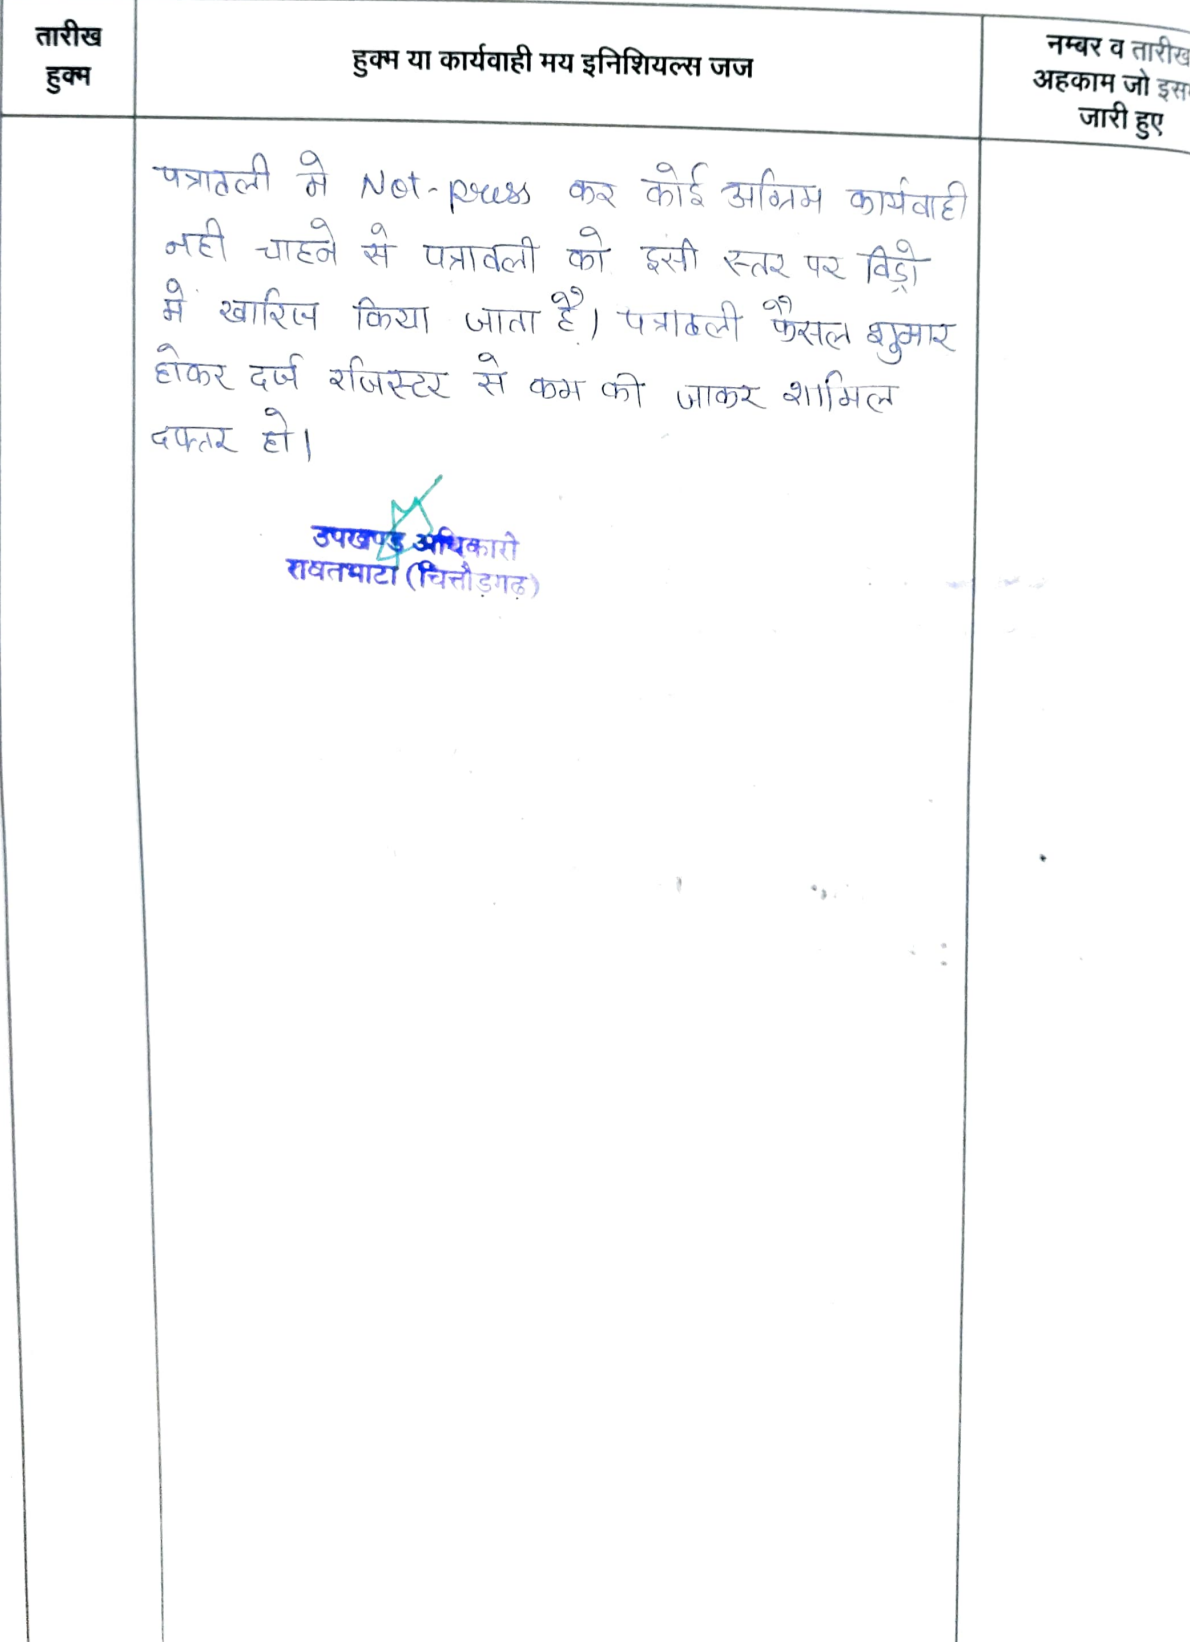 तारीख
हुक्म
हुक्म या कार्यवाही मय इनिशियल्स जज
नम्बर व तारीख
अहकाम जो इस
जारी हुए
पत्रावली मे Not-press कर कोई अग्रिम कार्यवाही
नही चाहने से पत्रावली को इसी स्तर पर विड्रो
मे खारिज किया जाता है। पत्रावली फैसल शुमार
होकर दर्ज रजिस्टर से कम की जाकर शामिल
दफ्तर हो।
उपखण्ड अधिकारी
रावतभाटा (चित्तौड़गढ़)